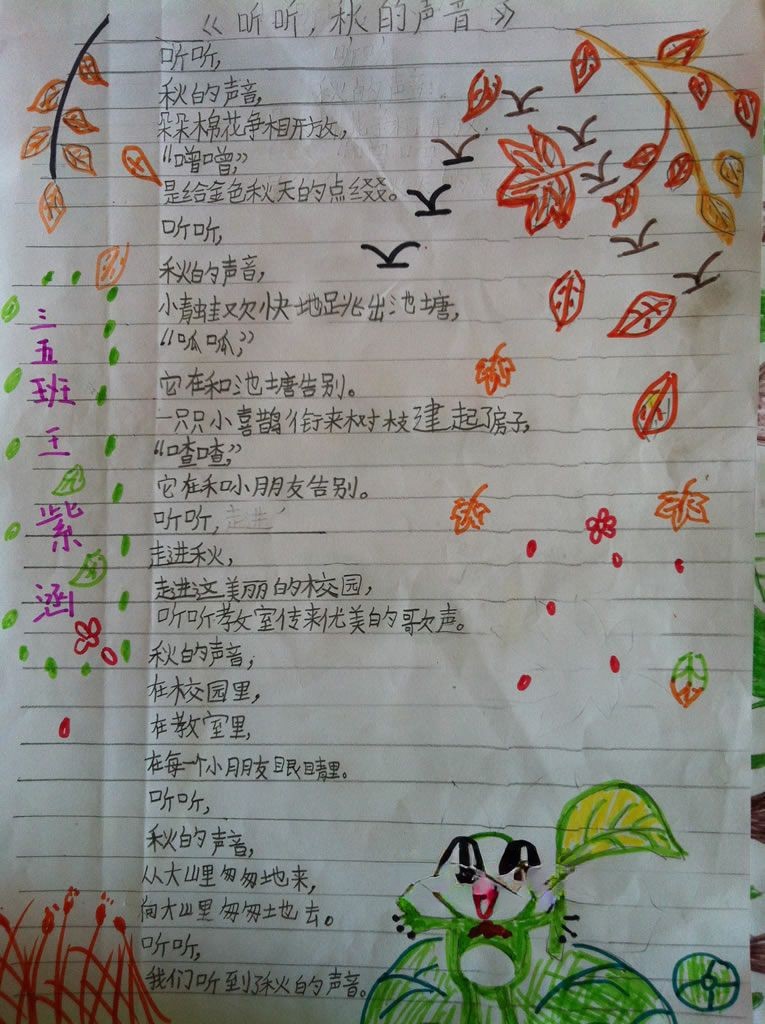 《听听,秋的声音》
听听,
秋的声音,
朵朵棉花争相开放,
“噌噌,”
是给金色秋天的点缀。
听听,
秋的声音,
小青蛙欢快地跳出池塘,
“呱呱,”
它在和池塘告别。
一只只小喜鹊衔来树枝建起了房子,
“喳喳,”
它在和小朋友告别。
听听,
走进秋,
走进这美丽的校园,
听听教室传来优美的歌声。
秋的声音,
在校园里,
在教室里,
在每一个小朋友眼睛里。
听听,
秋的声音,
从大山里匆匆地来,
向大山里匆匆地去。
听听,
我们听到了秋的声音。
三五班王紫涵